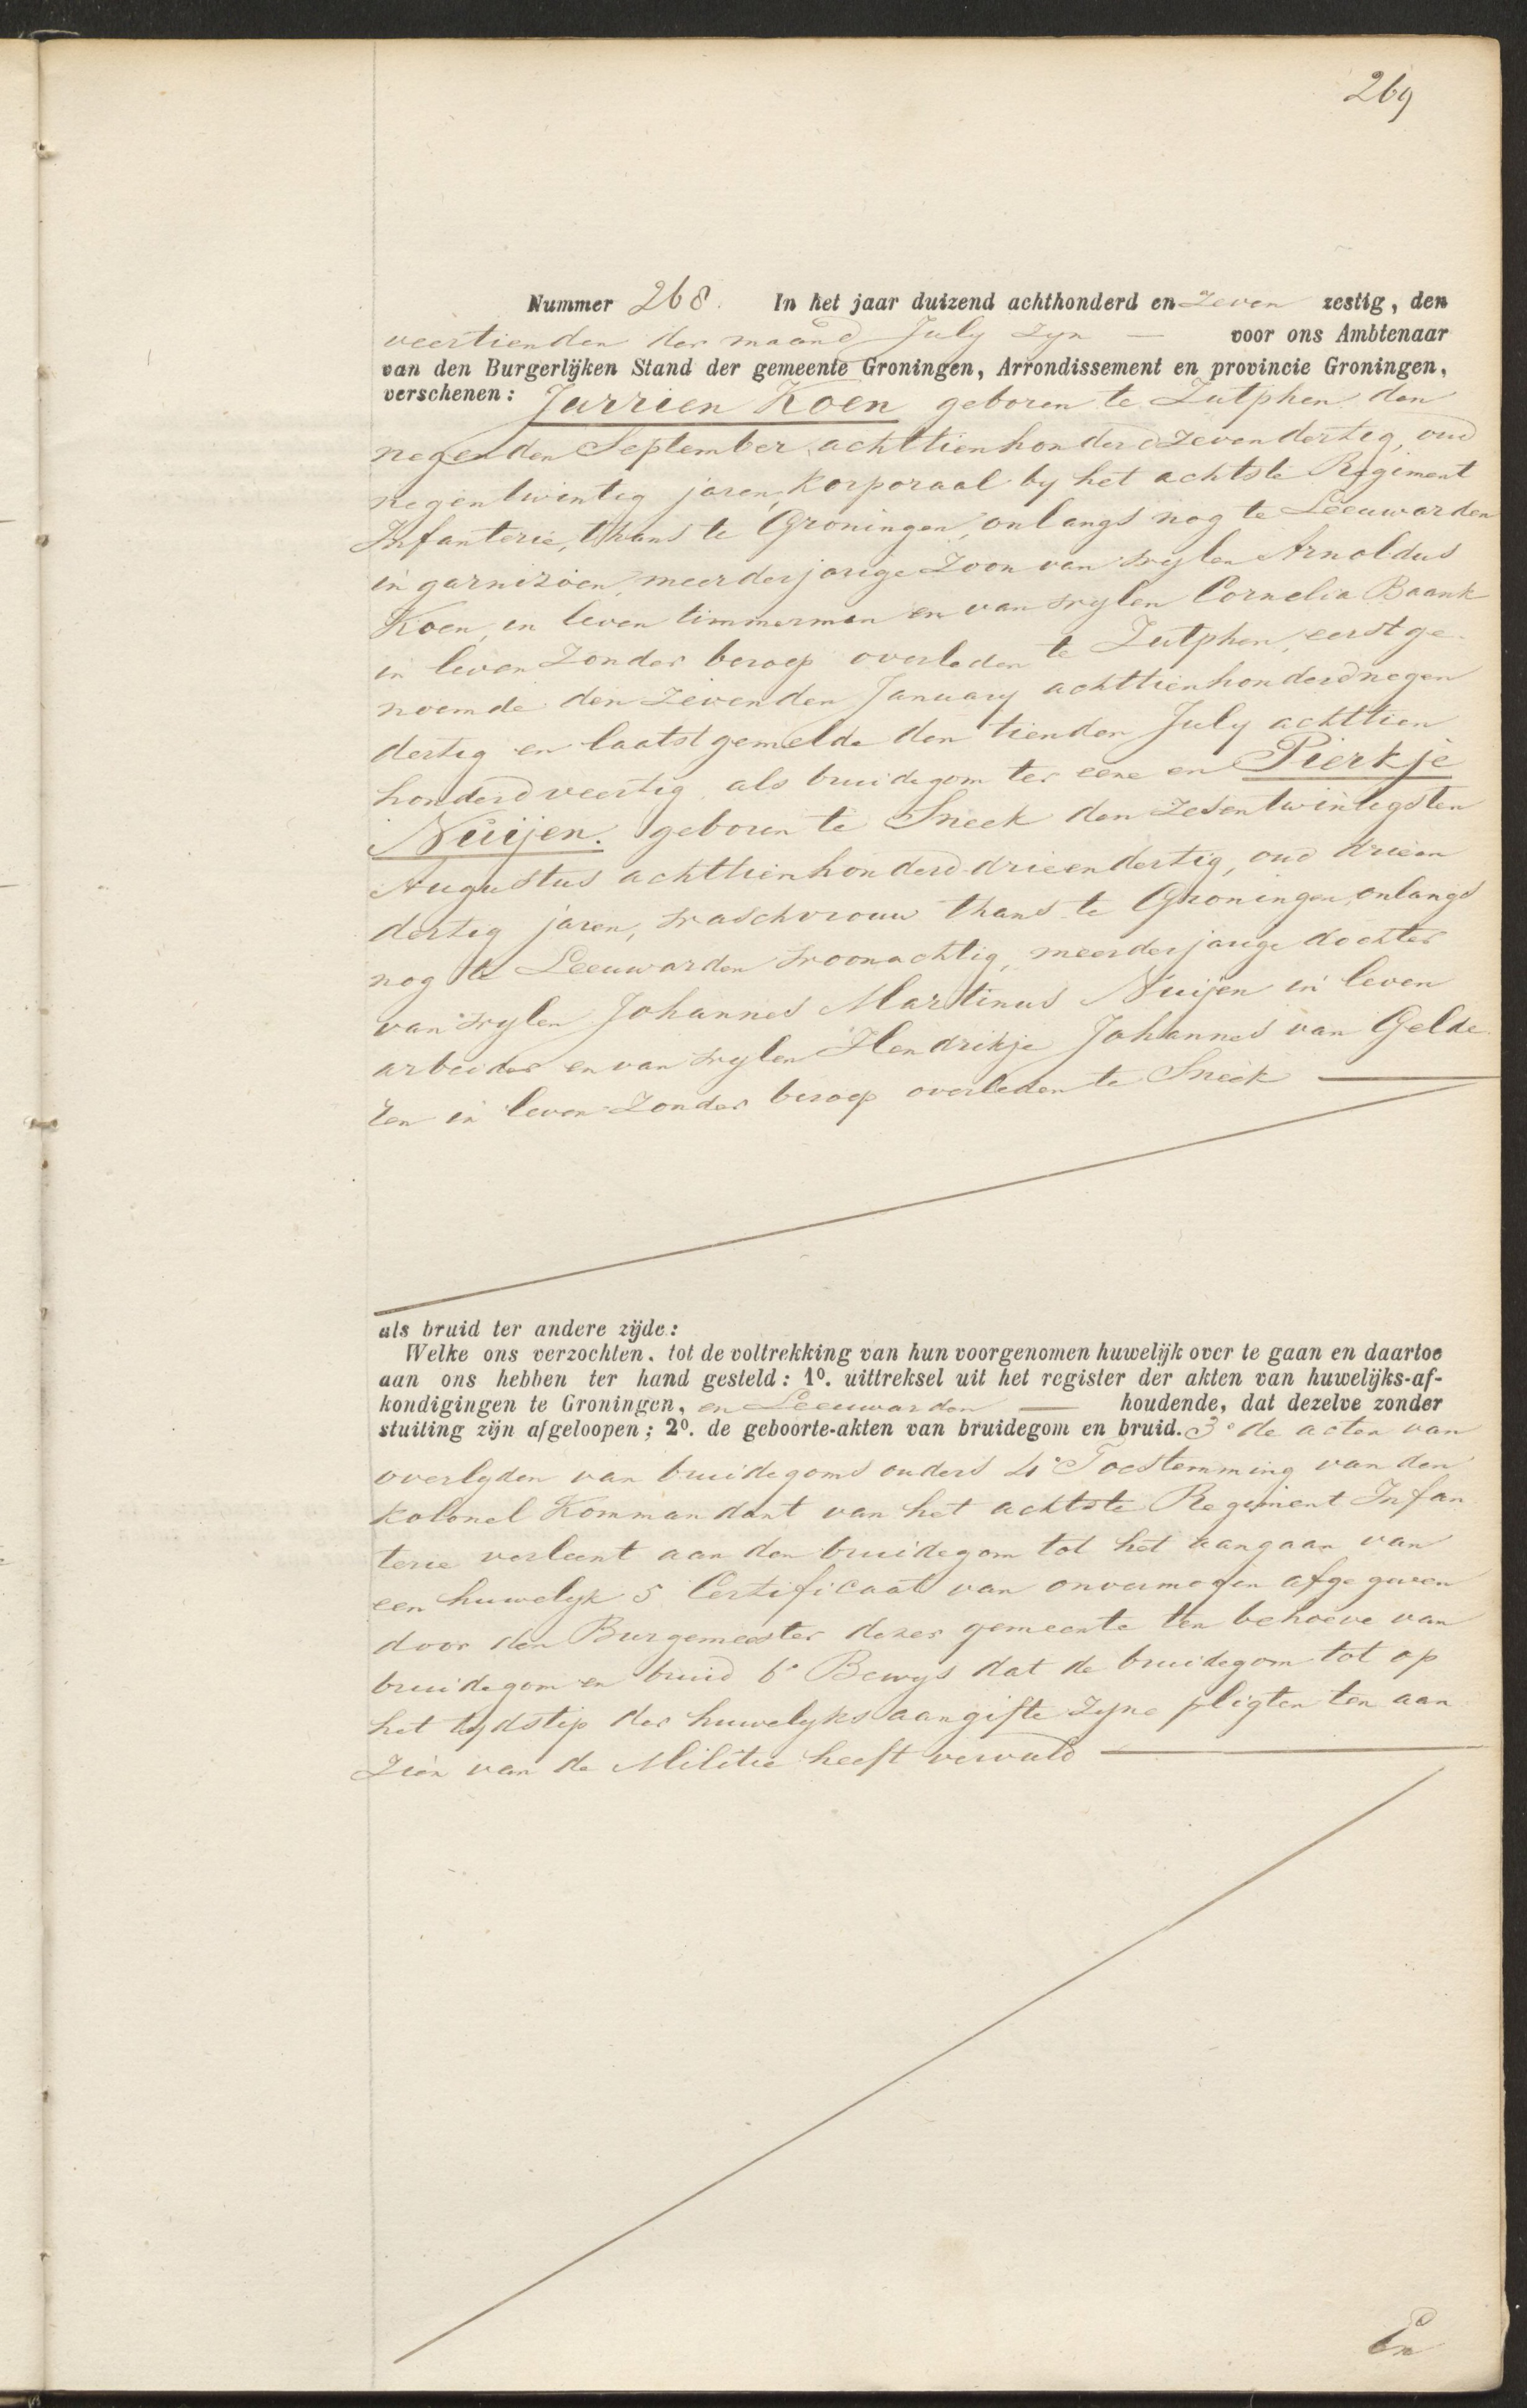 269
Nummer 268. In het jaar duizend achthonderd en zeven zestig, den
veertienden der maand July zyn — voor ons Ambtenaar
van den Burgerlijken Stand der gemeente Groningen, Arrondissement en provincie Groningen,
verschenen: Jurrien Koen geboren te Zutphen den
negenden September achttienhonderd zevendertig, oud
negentwintig jaren, korporaal by het achtste Regiment
Infanterie, thans te Groningen, onlangs nog te Leeuwarden
in garnizoen, meerderjarige Zoon van wylen Arnoldus
Koen, in leven timmerman en van wylen Cornelia Baank
in leven Zonder beroep overleden te Zutphen, eerstge-
noemde den zevenden January achttienhonderdnegen
dertig en laatstgemelde den tienden July achttien
honderdveertig als bruidegom ter eene en Pierkje
Nuijen. geboren te Sneek den zesentwintigsten
Augustus achttienhonderd drieendertig, oud drieen
dertig jaren, waschvrouw thans te Groningen, onlangs
nog te Leeuwarden woonachtig, meerderjarige dochter
van wylen Johannes Martinus Nuijen in leven
arbeider en van wylen Hendrikje Johannes van Gelde
ren in leven Zonder beroep overleden te Sneek —
als bruid ter andere zijde:
Welke ons verzochten, tot de voltrekking van hun voorgenomen huwelijk over te gaan en daartoe
aan ons hebben ter hand gesteld: 1º. uittreksel uit het register der akten van huwelijks-af-
kondigingen te Groningen, en Leeuwarden — houdende, dat dezelve zonder
stuiting zijn afgeloopen; 2º. de geboorte-akten van bruidegom en bruid. 3º de acten van
overlyden van bruidegoms ouders 4º Toestemming van den
kolonel Kommandant van het achtste Regiment Infan
terie verleent aan den bruidegom tot het aangaan van
een huwelyk 5 Certificaat van onvermogen afgegeven
door den Burgemeester dezer gemeente ten behoeve van
bruidegom en bruid 6º Bewys dat de bruidegom tot op
het tydstip der huwelyks aangifte zyne pligten ten aan
Zien van de Militie heeft vervuld —
En